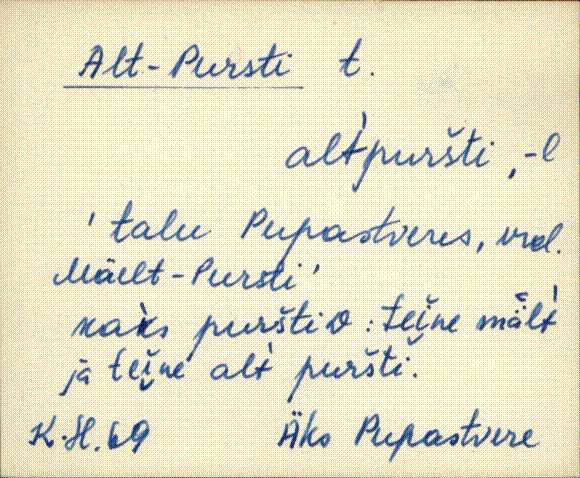 Alt-Pursti t.
alt̀puršti, -l
' talu Pupastveres, vrd.
Mäelt-Pursti'
kak̀s purštiD : tei̬ne mält̀
ja tei̬ne alt̀ puršti.
K.H. 69 Äks Pupastvere